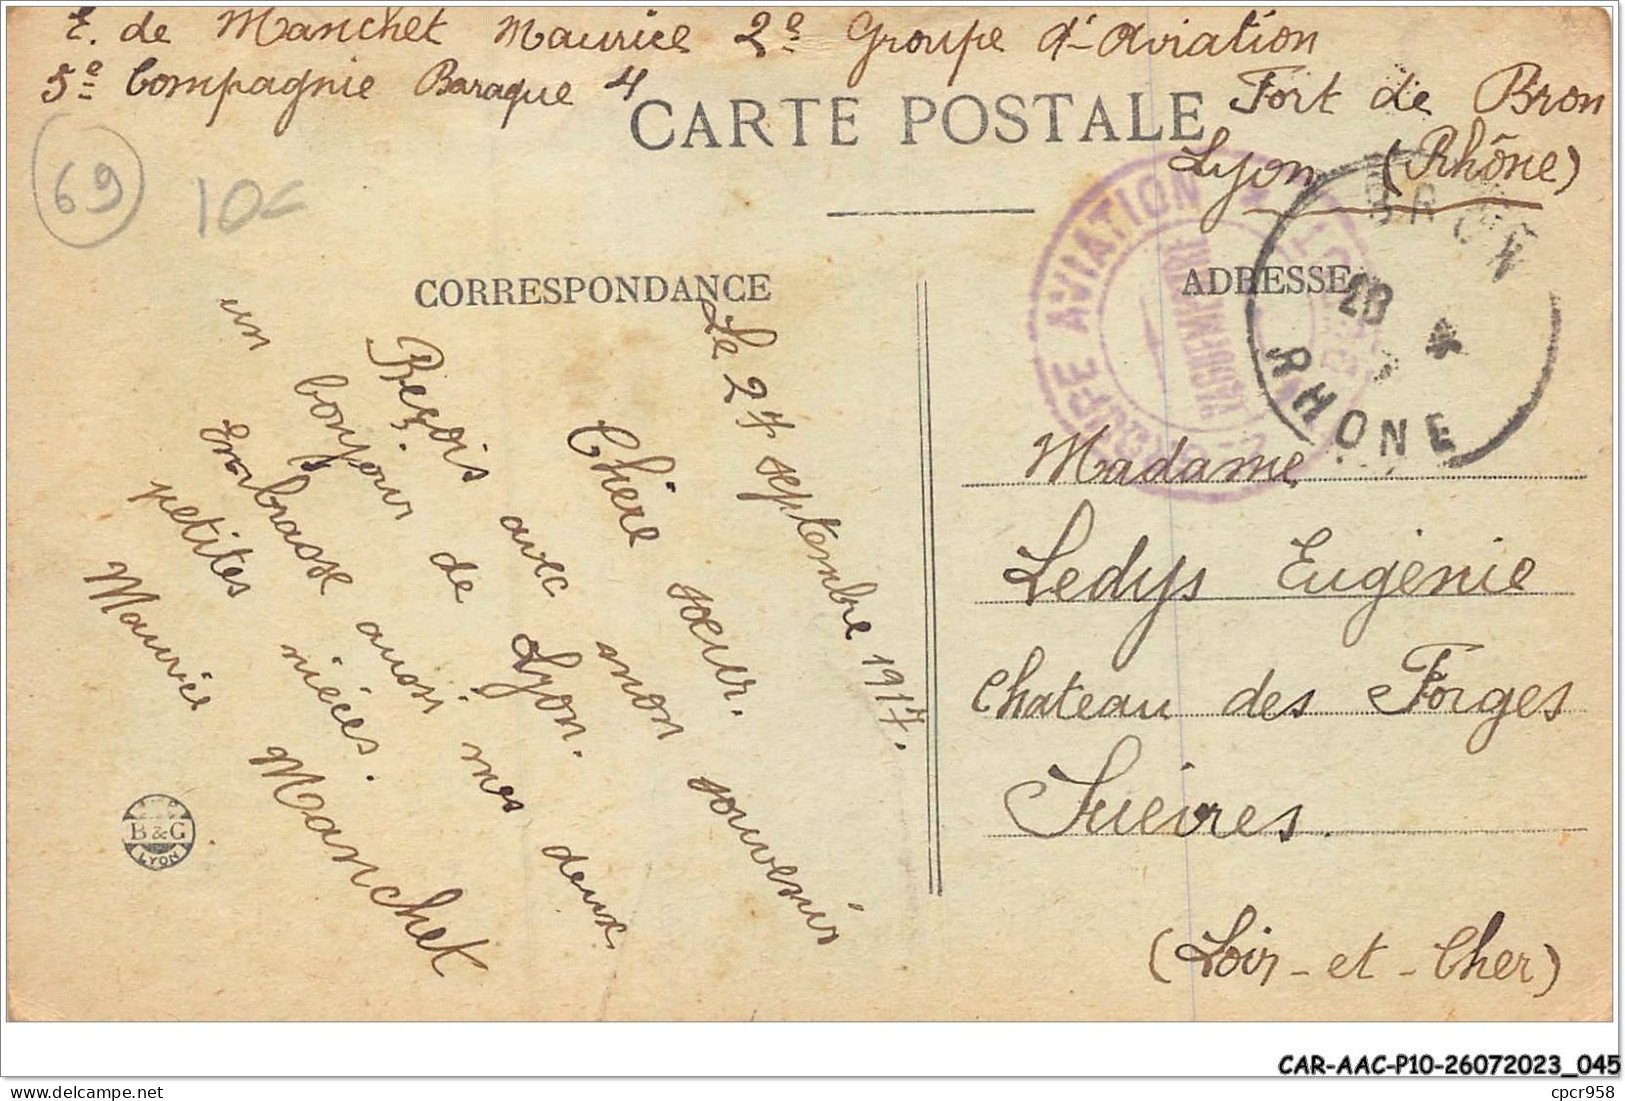 E. de Manchet Maurice 2e Groupe d'Aviation
5e Compagnie Baraque 4
Fort de Bron
Lyon (Rhône)
CARTE POSTALE
69
10€
CORRESPONDANCE
ADRESSE
AVIATION
BRON
28
RHONE
Le 27 septembre 1917.
Chère sœur.
Reçois avec mon souvenir
un bonjour de Lyon.
Embrasse aussi mes deux
petites nièces.
Maurice Manchet
Madame
Ledys Eugénie
Chateau des Forges
Suèvres.
(Loir-et-Cher)
B&G
LYON
CAR-AAC-P10-26072023_045
cpcr958